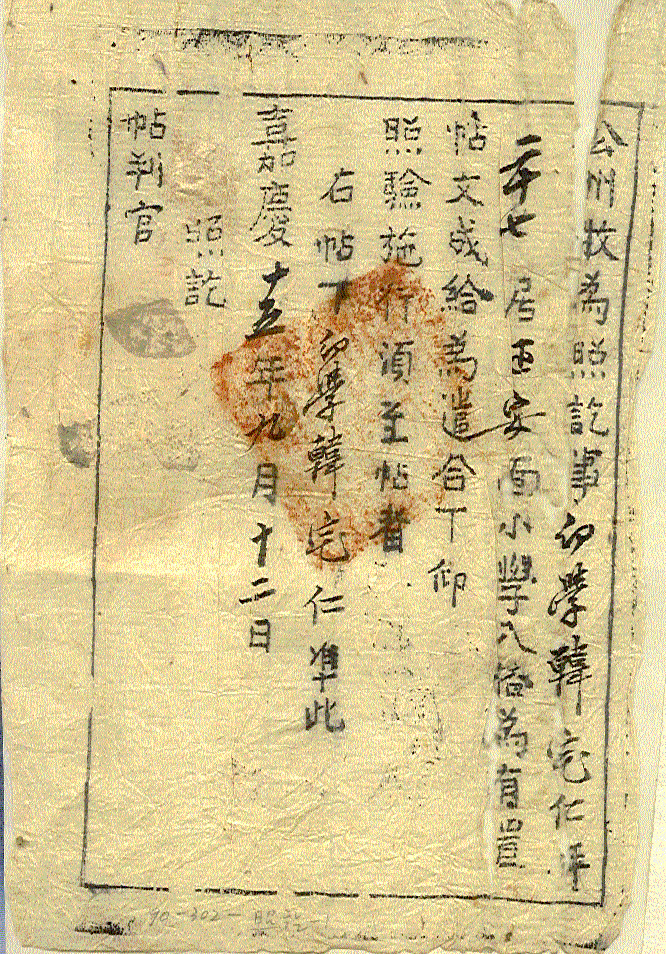 公州牧為照訖事幼學韓宅仁年
二十七居西安面小學入格為有置
帖文成給為遣合下仰
照驗施行須至帖者
右帖下幼學韓宅仁準此
嘉慶十五年九月十二日
照訖
帖判官
90-302- 照訖-1